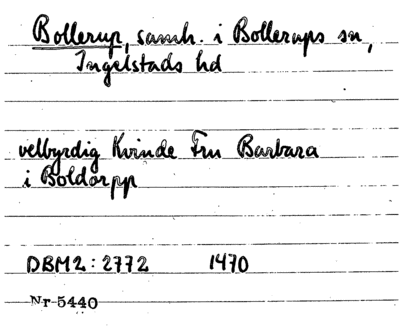 Bollerup, samh. i Bollerups sn,
Ingelstads hd
velbyrdig Kvinde Fru Barbara
i Boldorpp
DBM2: 2772 1470
Nr 5440